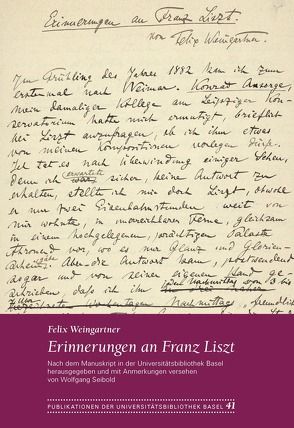 Erinnerungen an Franz Liszt.
von Felix Weingartner.
Im Frühling des Jahres 1882 kam ich zum
erstenmal nach Weimar. Konrad Ansorge,
mein damaliger Kollege am Leipziger Kon-
servatorium hatte mich ermutigt, brieflich
bei Liszt anzufragen, ob ich ihm etwas
von meinen Kompositionen vorlegen dürfe.
Ich tat es nach Überwindung einiger Scheu,
denn ich erwartete sicher, keine Antwort zu
erhalten, stellte ich mir doch Liszt, obwohl
er nur zwei Eisenbahnstunden weit von
mir wohnte, in unerreichbarer Ferne, gleichsam
in einem hochgelegenen, prächtigen Palaste
thronend vor, wo es nur Glanz und Glorien-
Aber die Antwort kam, postwendend
sogar und von seiner eigenen Hand ge-
schrieben, dass ich ihn
Nachmittags, freundlich
Felix Weingartner
Erinnerungen an Franz Liszt
Nach dem Manuskript in der Universitätsbibliothek Basel
herausgegeben und mit Anmerkungen versehen
von Wolfgang Seibold
PUBLIKATIONEN DER UNIVERSITÄTSBIBLIOTHEK BASEL 41